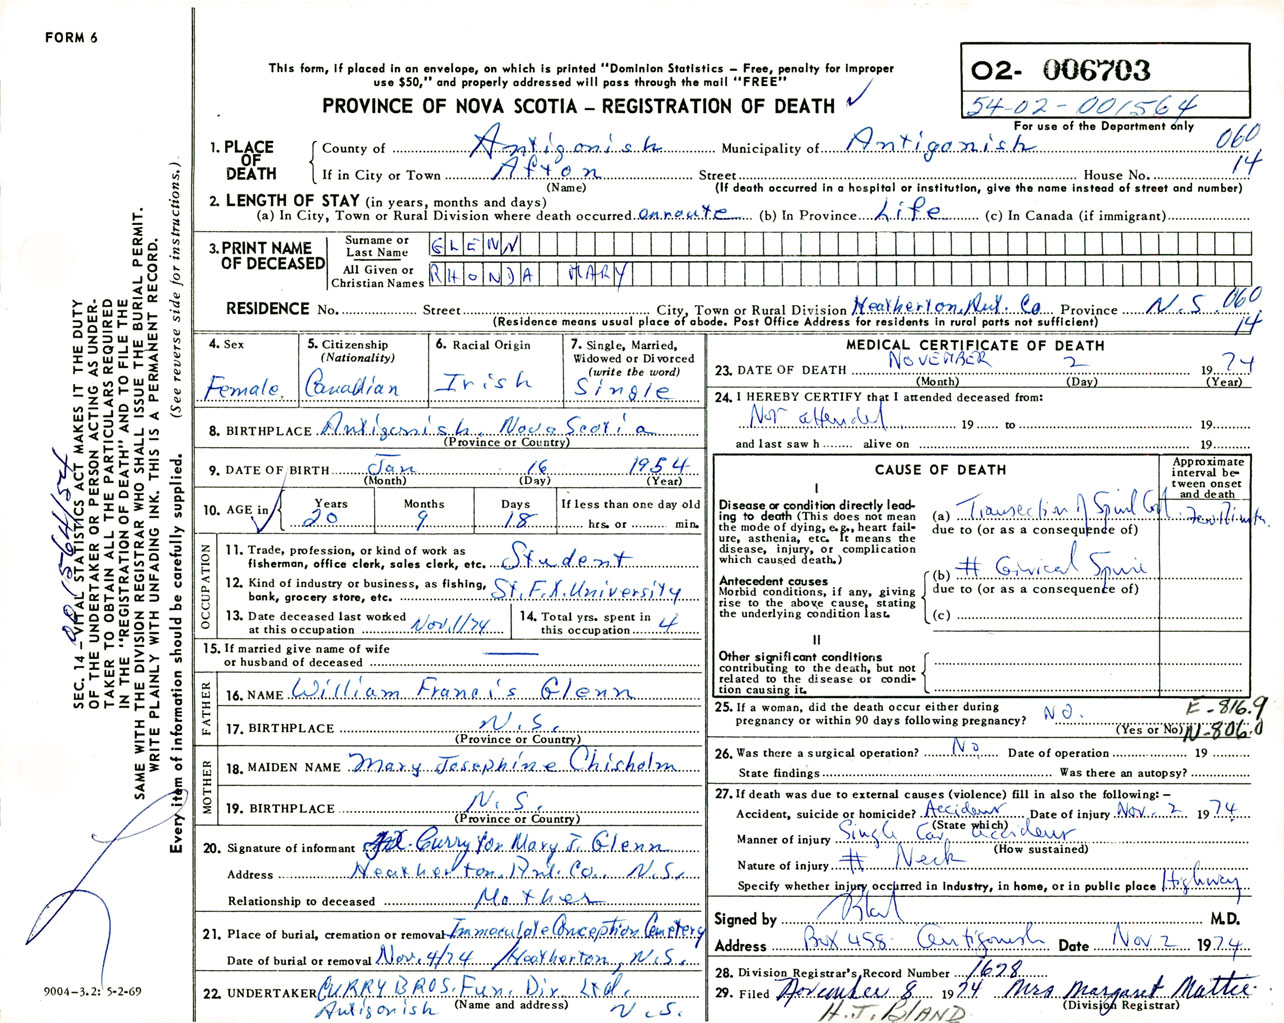 FORM 6
This form, if placed in an envelope, on which is printed "Dominion Statistics – Free, penalty for improper
use $50," and properly addressed will pass through the mail "FREE"
PROVINCE OF NOVA SCOTIA – REGISTRATION OF DEATH
02- 006703
54-02-001564
For use of the Department only
060
14
1. PLACE OF DEATH
County of Antigonish Municipality of Antigonish
If in City or Town Afton Street House No.
(Name) (If death occurred in a hospital or institution, give the name instead of street and number)
2. LENGTH OF STAY (in years, months and days)
(a) In City, Town or Rural Division where death occurred enroute (b) In Province Life (c) In Canada (if immigrant)
3. PRINT NAME OF DECEASED
Surname or Last Name GLENN
All Given or Christian Names RHONDA MARY
RESIDENCE No. Street City, Town or Rural Division Heatherton, Ant. Co. Province N.S. 060
(Residence means usual place of abode. Post Office Address for residents in rural parts not sufficient) 14
4. Sex
Female.
5. Citizenship
(Nationality)
Canadian
6. Racial Origin
Irish
7. Single, Married,
Widowed or Divorced
(write the word)
Single
8. BIRTHPLACE Antigonish, Nova Scotia
(Province or Country)
9. DATE OF BIRTH Jan 16 1954
(Month) (Day) (Year)
10. AGE in
Years 20
Months 9
Days 18
If less than one day old
hrs. or min.
OCCUPATION
11. Trade, profession, or kind of work as
fisherman, office clerk, sales clerk, etc. Student
12. Kind of industry or business, as fishing,
bank, grocery store, etc. St. F.X. University
13. Date deceased last worked
at this occupation Nov. 1/74
14. Total yrs. spent in
this occupation 4
15. If married give name of wife
or husband of deceased
FATHER
16. NAME William Francis Glenn
17. BIRTHPLACE N.S.
(Province or Country)
MOTHER
18. MAIDEN NAME Mary Josephine Chisholm
19. BIRTHPLACE N.S.
(Province or Country)
20. Signature of informant Curry for Mary J. Glenn
Address Heatherton, Ant. Co., N.S.
Relationship to deceased Mother
21. Place of burial, cremation or removal Immaculate Conception Cemetery
Date of burial or removal Nov. 4/74 Heatherton, N.S.
22. UNDERTAKER CURRY BROS. Fun. Dir. Ltd.
(Name and address)
Antigonish N.S.
MEDICAL CERTIFICATE OF DEATH
23. DATE OF DEATH NOVEMBER 2 1974
(Month) (Day) (Year)
24. I HEREBY CERTIFY that I attended deceased from:
Not attended 19 to 19
and last saw h alive on 19
CAUSE OF DEATH
Approximate
interval be-
tween onset
and death
I
Disease or condition directly lead-
ing to death (This does not mean
the mode of dying, e.g., heart fail-
ure, asthenia, etc. It means the
disease, injury, or complication
which caused death.)
(a) Transection of Spinal Cord few Minutes
due to (or as a consequence of)
Antecedent causes
Morbid conditions, if any, giving
rise to the above cause, stating
the underlying condition last.
(b) # Cervical Spine
due to (or as a consequence of)
(c)
II
Other significant conditions
contributing to the death, but not
related to the disease or condi-
tion causing it.
25. If a woman, did the death occur either during
pregnancy or within 90 days following pregnancy? No.
(Yes or No)
E-816.9
N-806.0
26. Was there a surgical operation? No Date of operation 19
State findings Was there an autopsy?
27. If death was due to external causes (violence) fill in also the following: –
Accident, suicide or homicide? Accident Date of injury Nov. 2 1974
(State which)
Manner of injury Single Car accident
(How sustained)
Nature of injury # Neck
Specify whether injury occurred in Industry, in home, or in public place Highway
Signed by M.D.
Address Box 458 Antigonish Date Nov 2 1974
28. Division Registrar's Record Number 1628
29. Filed November 8 1974 Mrs Margaret Mattie
(Division Registrar)
H.J. BLAND
SEC. 14 – VITAL STATISTICS ACT MAKES IT THE DUTY
OF THE UNDERTAKER OR PERSON ACTING AS UNDER-
TAKER TO OBTAIN ALL THE PARTICULARS REQUIRED
IN THE "REGISTRATION OF DEATH" AND TO FILE THE
SAME WITH THE DIVISION REGISTRAR WHO SHALL ISSUE THE BURIAL PERMIT.
WRITE PLAINLY WITH UNFADING INK. THIS IS A PERMANENT RECORD.
Every item of information should be carefully supplied. (See reverse side for instructions.)
9004-3.2: 5-2-69